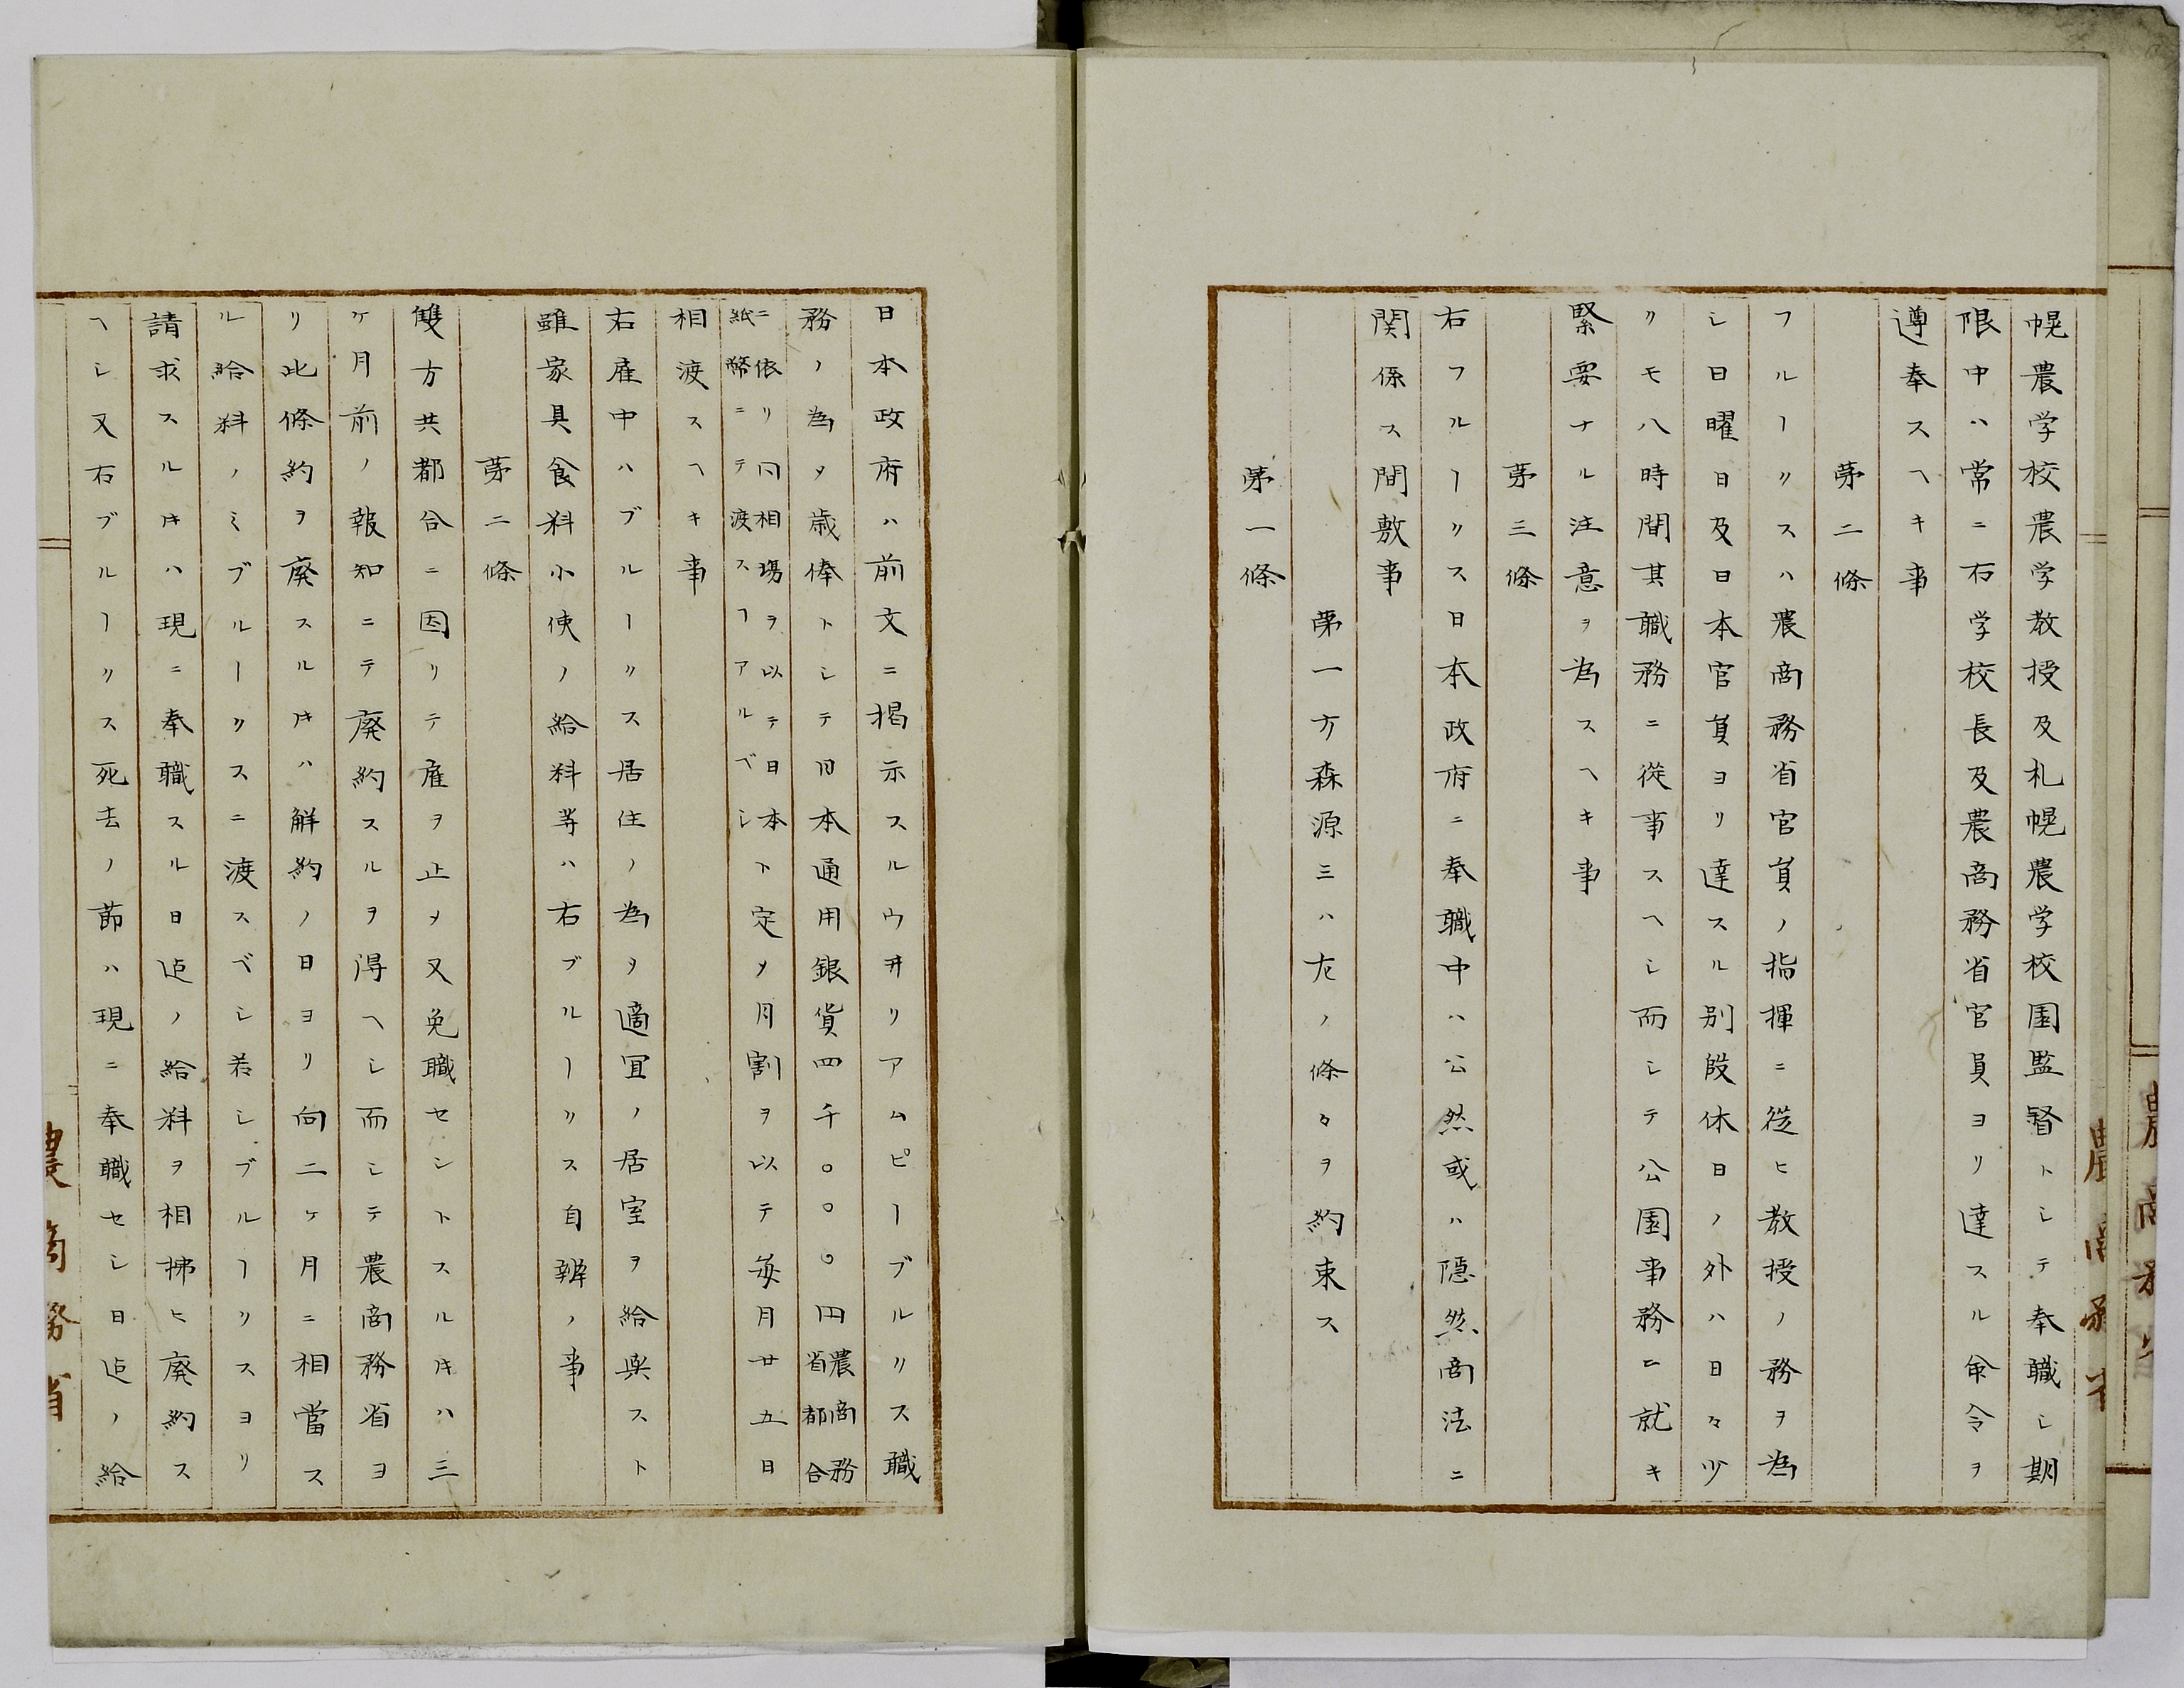 幌農学校農学教授及札幌農学校園監督トシテ奉職シ期
限中ハ常ニ右学校長及農商務省官員ヨリ達スル命令ヲ
遵奉スヘキ事
第二條
フルーリスハ農商務省官員ノ指揮ニ従ヒ教授ノ務ヲ為
シ日曜日及日本官員ヨリ達スル別段休日ノ外ハ日々少
クモ八時間其職務ニ従事スヘシ而シテ公園事務ニ就キ
緊要ナル注意ヲ為スヘキ事
第三條
右フルーリス日本政府ニ奉職中ハ公然或ハ隠然商法ニ
関係ス間敷事
第一方森源三ハ左ノ條々ヲ約束ス
第一條
日本政府ハ前文ニ掲示スルウヰリアムピーブルリス職
務ノ為メ歳俸トシテ日本通用銀貨四千〇〇〇円農商務省都合
ニ依リ円相場ヲ以テ日本紙幣ニテ渡スヿアルベシト定メ月割ヲ以テ毎月廿五日
相渡スヘキ事
右雇中ハブルーリス居住ノ為メ適宜ノ居室ヲ給与スト
雖家具食料小使ノ給料等ハ右ブルーリス自辨ノ事
第二條
雙方共都合ニ因リテ雇ヲ止メ又免職セントスルキハ三
ケ月前ノ報知ニテ廃約スルヲ得ヘシ而シテ農商務省ヨ
リ此條約ヲ廃スルキハ解約ノ日ヨリ向二ケ月ニ相當ス
ル給料ノミブルーリスニ渡スベシ若シブルーリスヨリ
請求スルキハ現ニ奉職スル日迠ノ給料ヲ相拂ヒ廃約ス
ヘシ又右ブルーリス死去ノ節ハ現ニ奉職セシ日迠ノ給
農商務省
農商務省
農商務省